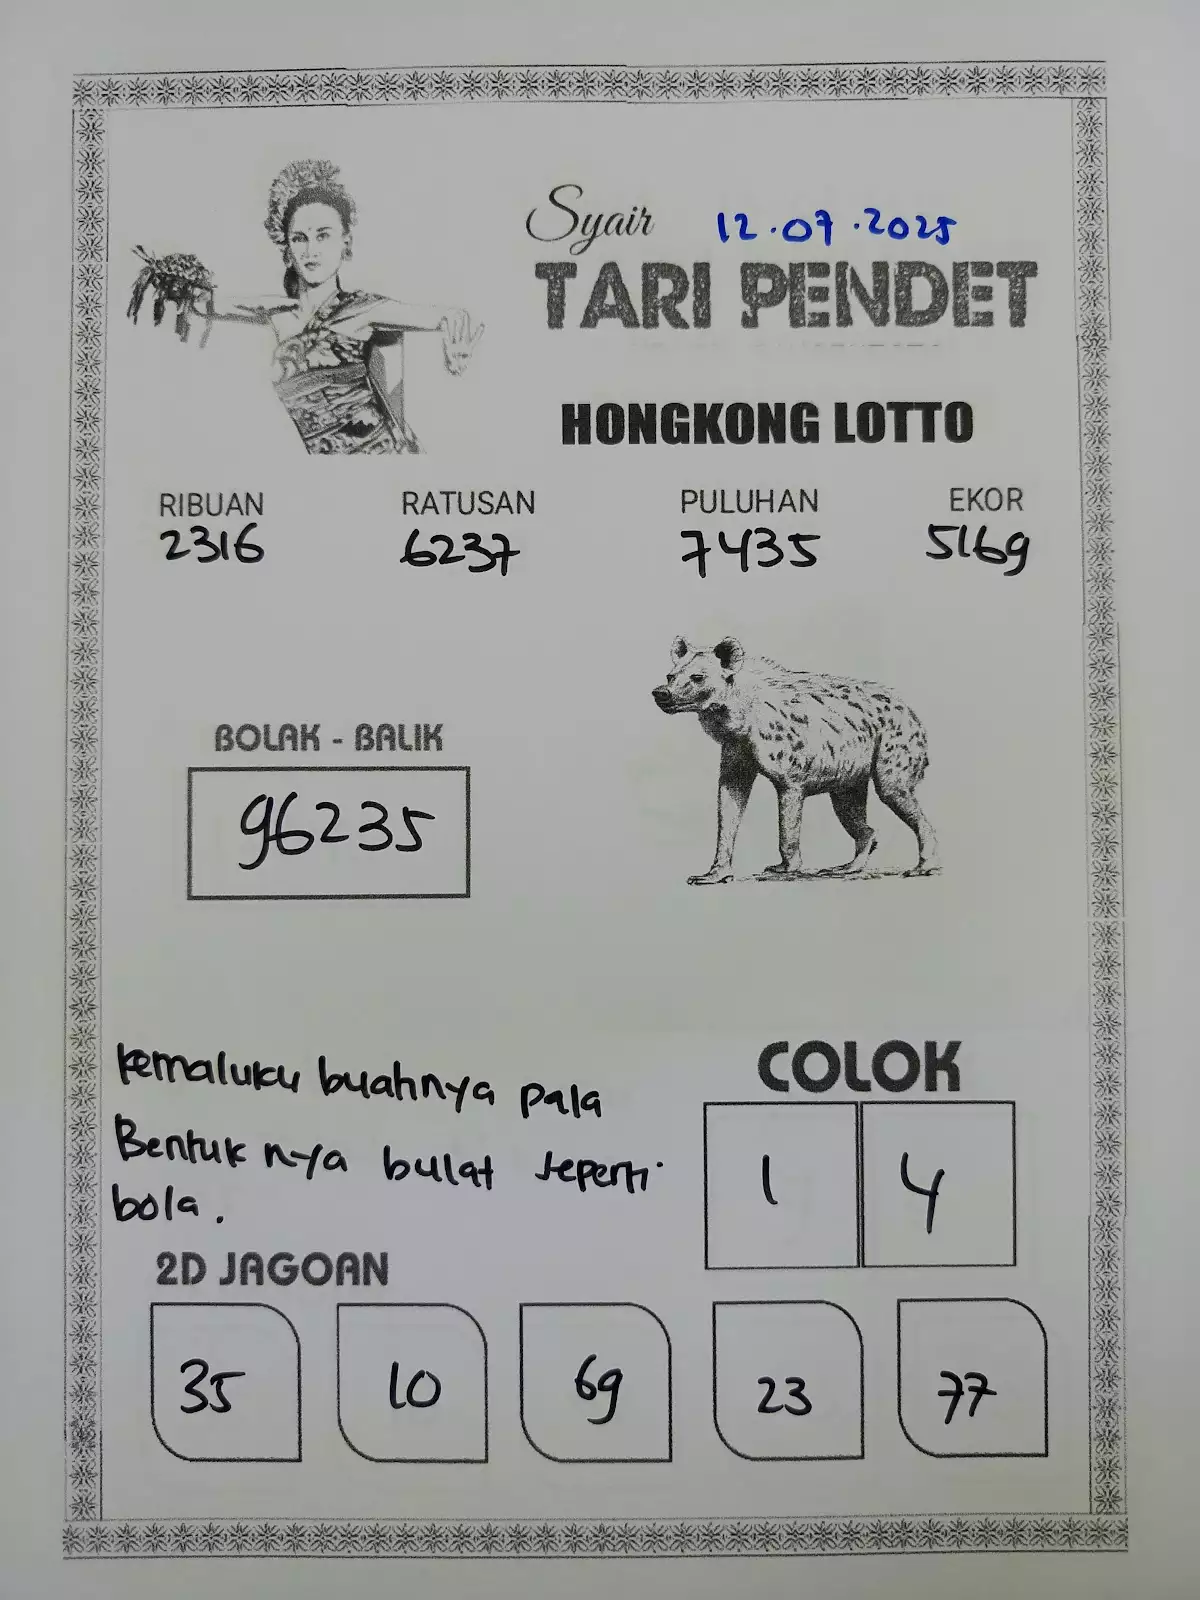 Syair 12.07.2025
TARI PENDET
HONGKONG LOTTO
RIBUAN RATUSAN PULUHAN EKOR
2316 6237 7435 5169
BOLAK - BALIK
96235
Kemaluku buahnya pala
Bentuk nya bulat seperti
bola.
COLOK
1 4
2D JAGOAN
35 10 69 23 77